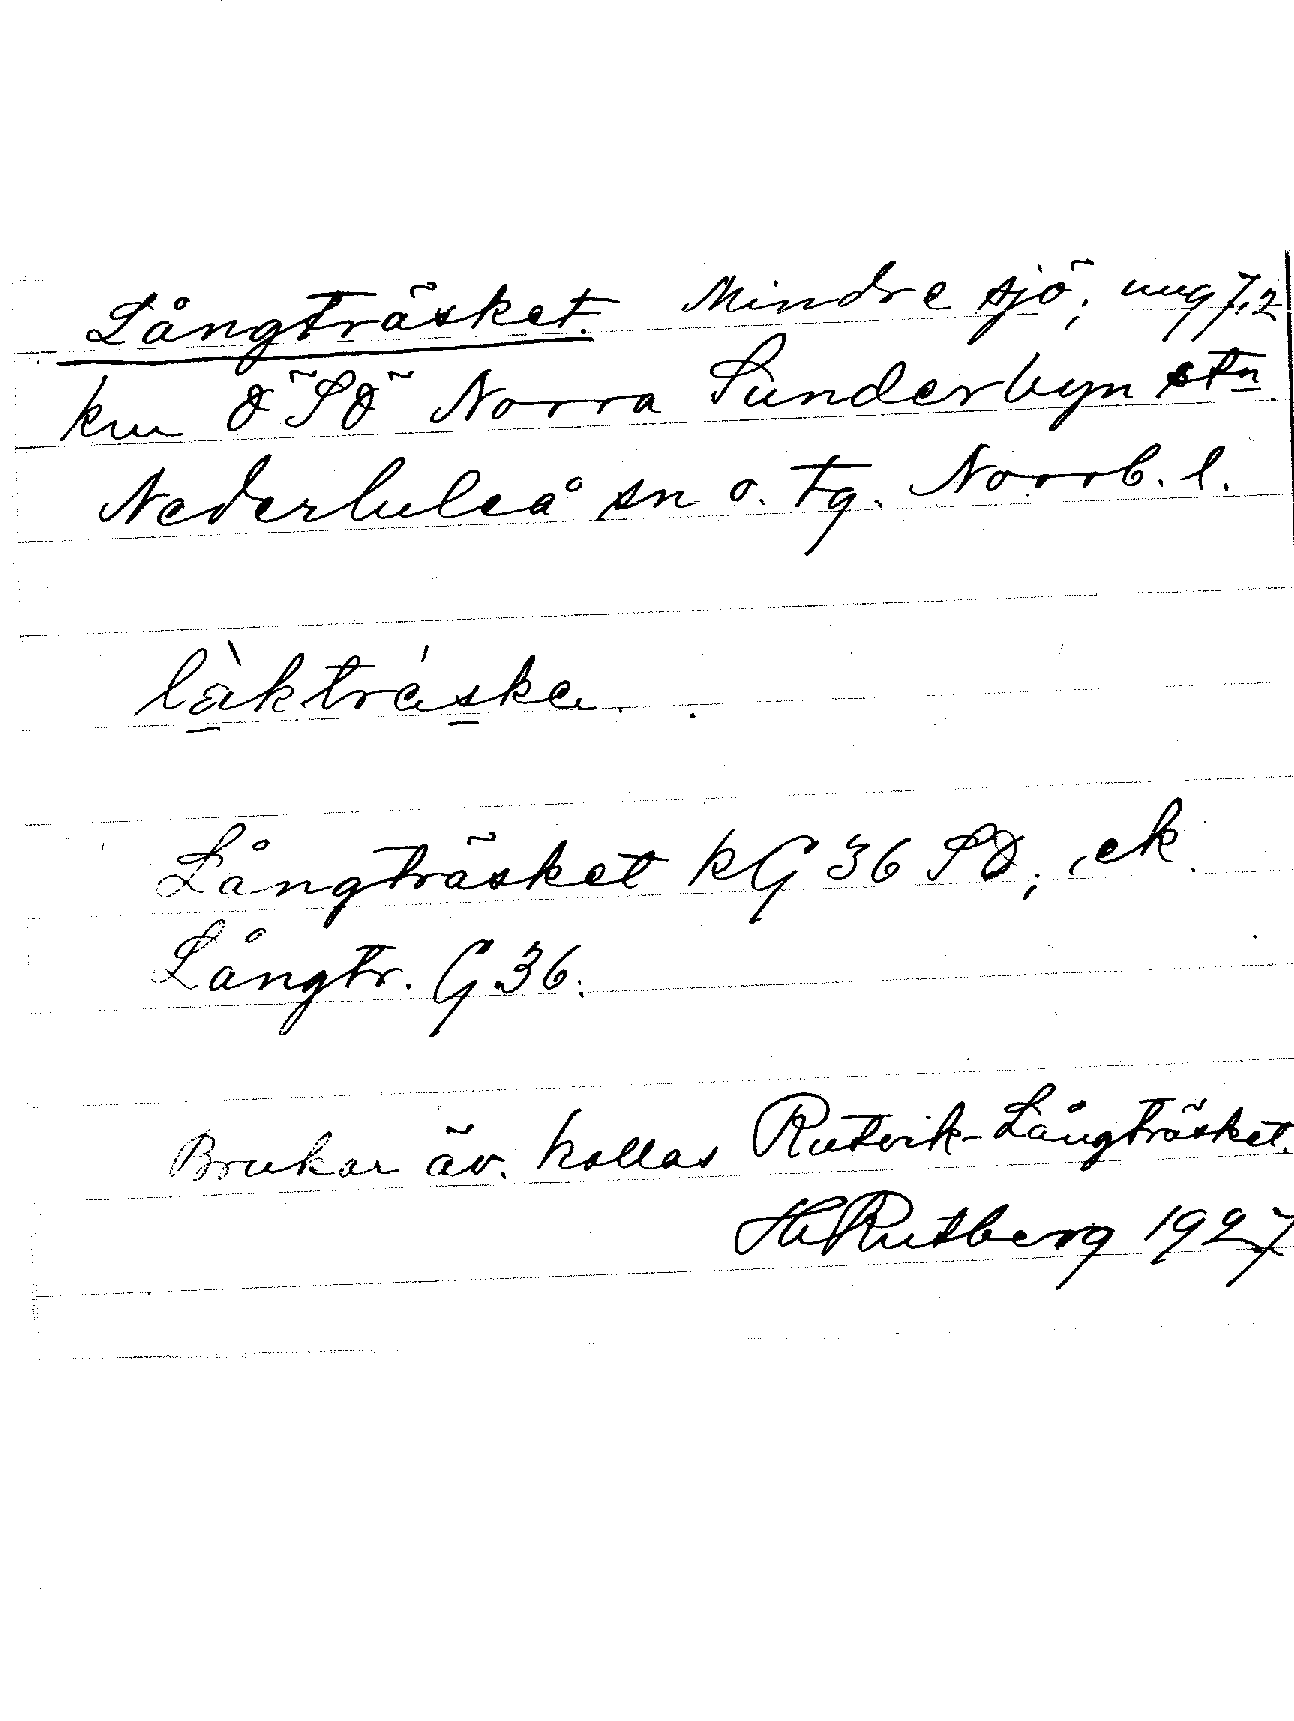 Långträsket. Mindre sjö, ung 7,2
km ÖSÖ Norra Sunderbyn stn
Nederluleå sn o. tg. Norrb. l.
làktréska.
Långträsket kG 36 SO; ek
Långtr. G 36.
Brukar äv. kallas Rutvik-Långträsket.
H. Rutberg 1927